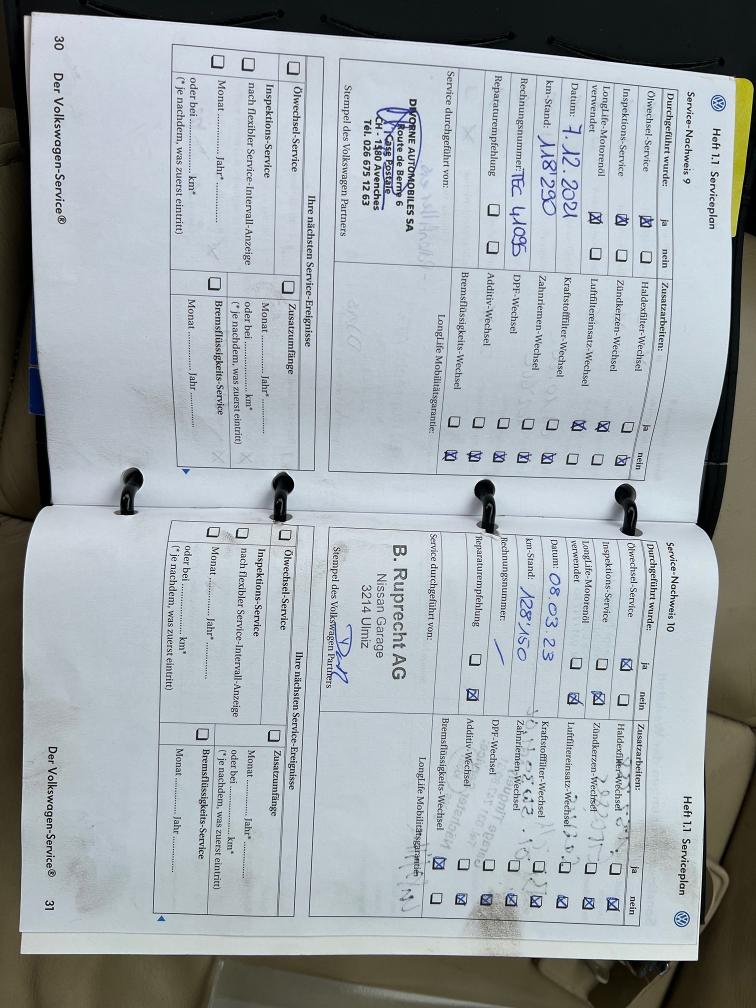 Heft 1.1 Serviceplan
Service-Nachweis 9
Durchgeführt wurde: ja nein
Ölwechsel-Service
Inspektions-Service
LongLife-Motorenöl
verwendet
Datum: 7.12.2021
km-Stand: 118'290
Rechnungsnummer: TEC 41095
Reparaturempfehlung
Service durchgeführt von:
DIVORNE AUTOMOBILES SA
Route de Berne 6
Case Postale
CH - 1580 Avenches
Tél. 026 675 12 63
Stempel des Volkswagen Partners
Zusatzarbeiten: ja nein
Haldexfilter-Wechsel
Zündkerzen-Wechsel
Luftfiltereinsatz-Wechsel
Kraftstofffilter-Wechsel
Zahnriemen-Wechsel
DPF-Wechsel
Additiv-Wechsel
Bremsflüssigkeits-Wechsel
LongLife Mobilitätsgarantie:
Ihre nächsten Service-Ereignisse
Ölwechsel-Service
Inspektions-Service
nach flexibler Service-Intervall-Anzeige
Monat ............ Jahr* ............
oder bei ............ km*
(*je nachdem, was zuerst eintritt)
Zusatzumfänge
Monat ............ Jahr* ............
oder bei ............ km*
(*je nachdem, was zuerst eintritt)
Bremsflüssigkeits-Service
Monat ............ Jahr ............
30 Der Volkswagen-Service®
Heft 1.1 Serviceplan
Service-Nachweis 10
Durchgeführt wurde: ja nein
Ölwechsel-Service
Inspektions-Service
LongLife-Motorenöl
verwendet
Datum: 08.03.23
km-Stand: 128'150
Rechnungsnummer: /
Reparaturempfehlung
Service durchgeführt von:
B. Ruprecht AG
Nissan Garage
3214 Ulmiz
Stempel des Volkswagen Partners
Zusatzarbeiten: ja nein
Haldexfilter-Wechsel
Zündkerzen-Wechsel
Luftfiltereinsatz-Wechsel
Kraftstofffilter-Wechsel
Zahnriemen-Wechsel
DPF-Wechsel
Additiv-Wechsel
Bremsflüssigkeits-Wechsel
LongLife Mobilitätsgarantie:
Ihre nächsten Service-Ereignisse
Ölwechsel-Service
Inspektions-Service
nach flexibler Service-Intervall-Anzeige
Monat ............ Jahr* ............
oder bei ............ km*
(*je nachdem, was zuerst eintritt)
Zusatzumfänge
Monat ............ Jahr* ............
oder bei ............ km*
(*je nachdem, was zuerst eintritt)
Bremsflüssigkeits-Service
Monat ............ Jahr ............
Der Volkswagen-Service® 31